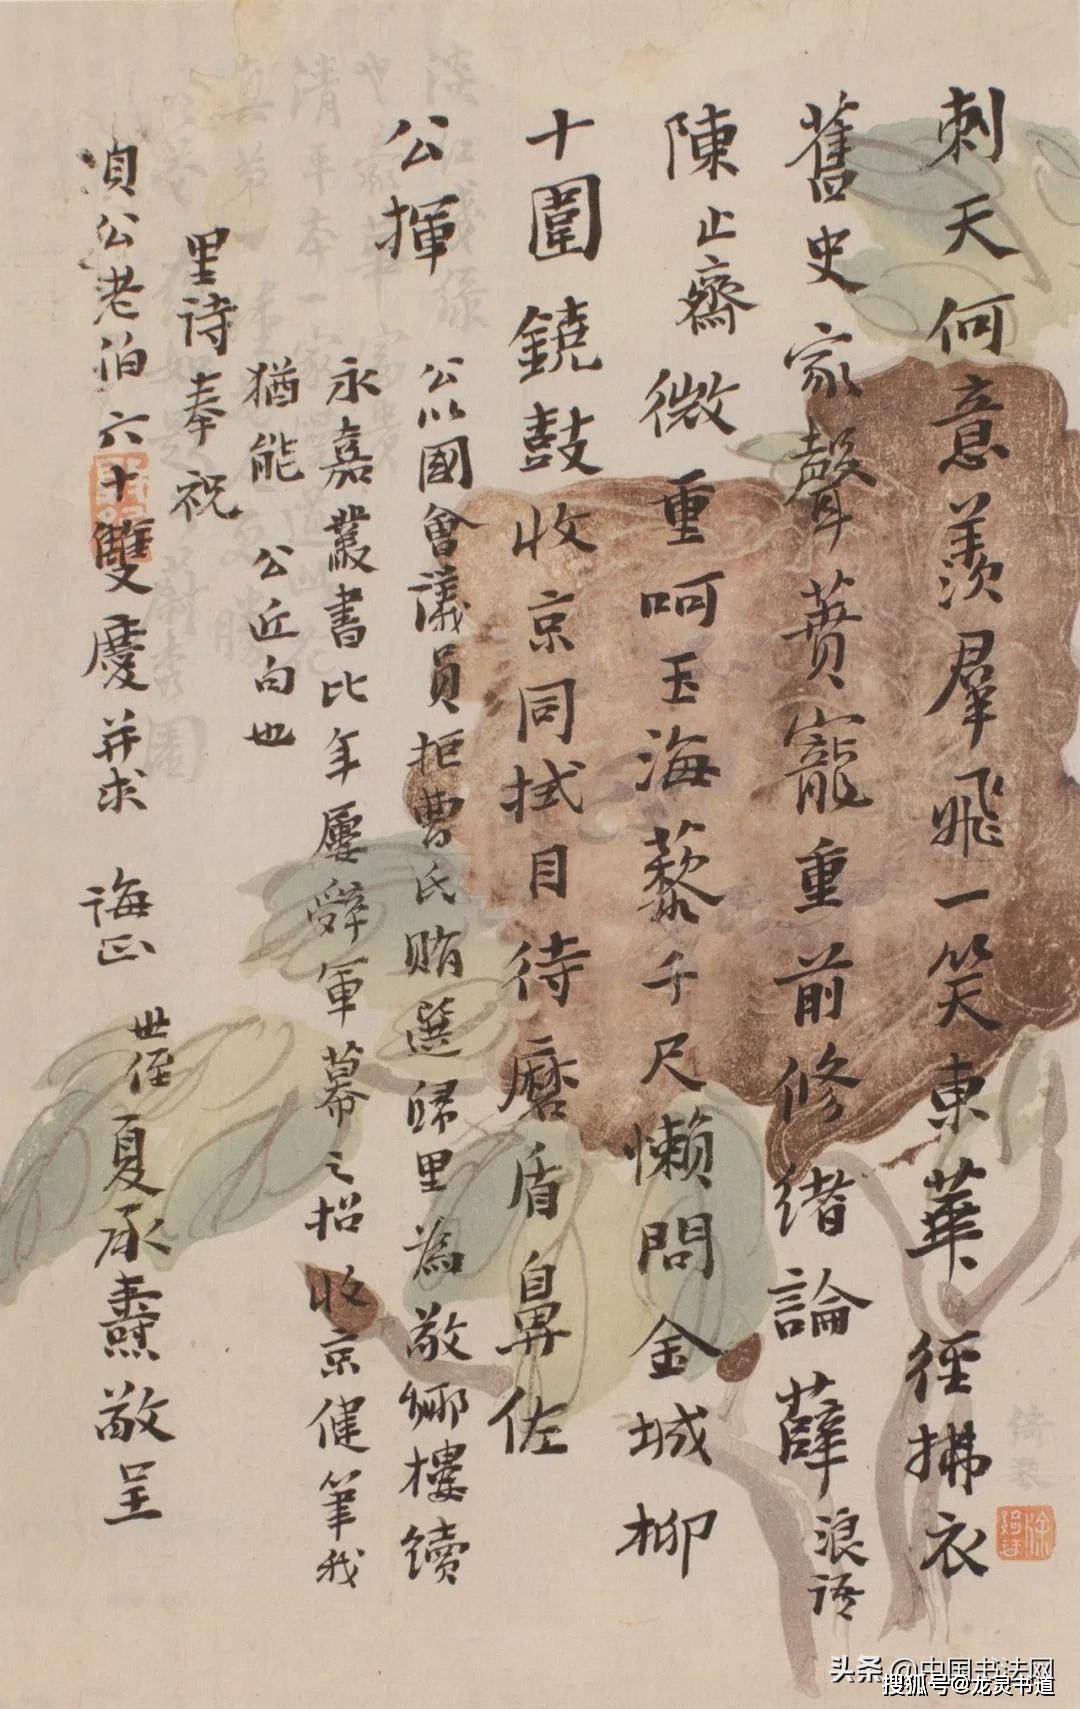 刺天何意羨羣飛一笑東華徑拂衣
舊史家聲賁寵重前修緒論薛浪語
陳止齋微重呵玉海藜千尺懶問金城柳
十圍鐃鼓收京同拭目待磨盾鼻佐
公揮
公以國會議員拒曹氏賄選歸里為敬鄉樓續
永嘉叢書比年屢辭軍幕之招收京健筆我
猶能 公近句也
里詩奉祝
公老伯六十雙慶并求 誨正 世侄夏承燾敬呈
头条@中国书法网
搜狐号@龙灵书道